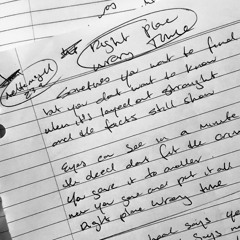 Right Place
wrong Time
Sometimes you want to find
but you dont want to know
when it's layed out straight
and the facts still show
Eyes can see in a minute
the deed dont fit the
You gave it to another
now you gone and put it all
Right place wrong time
says you